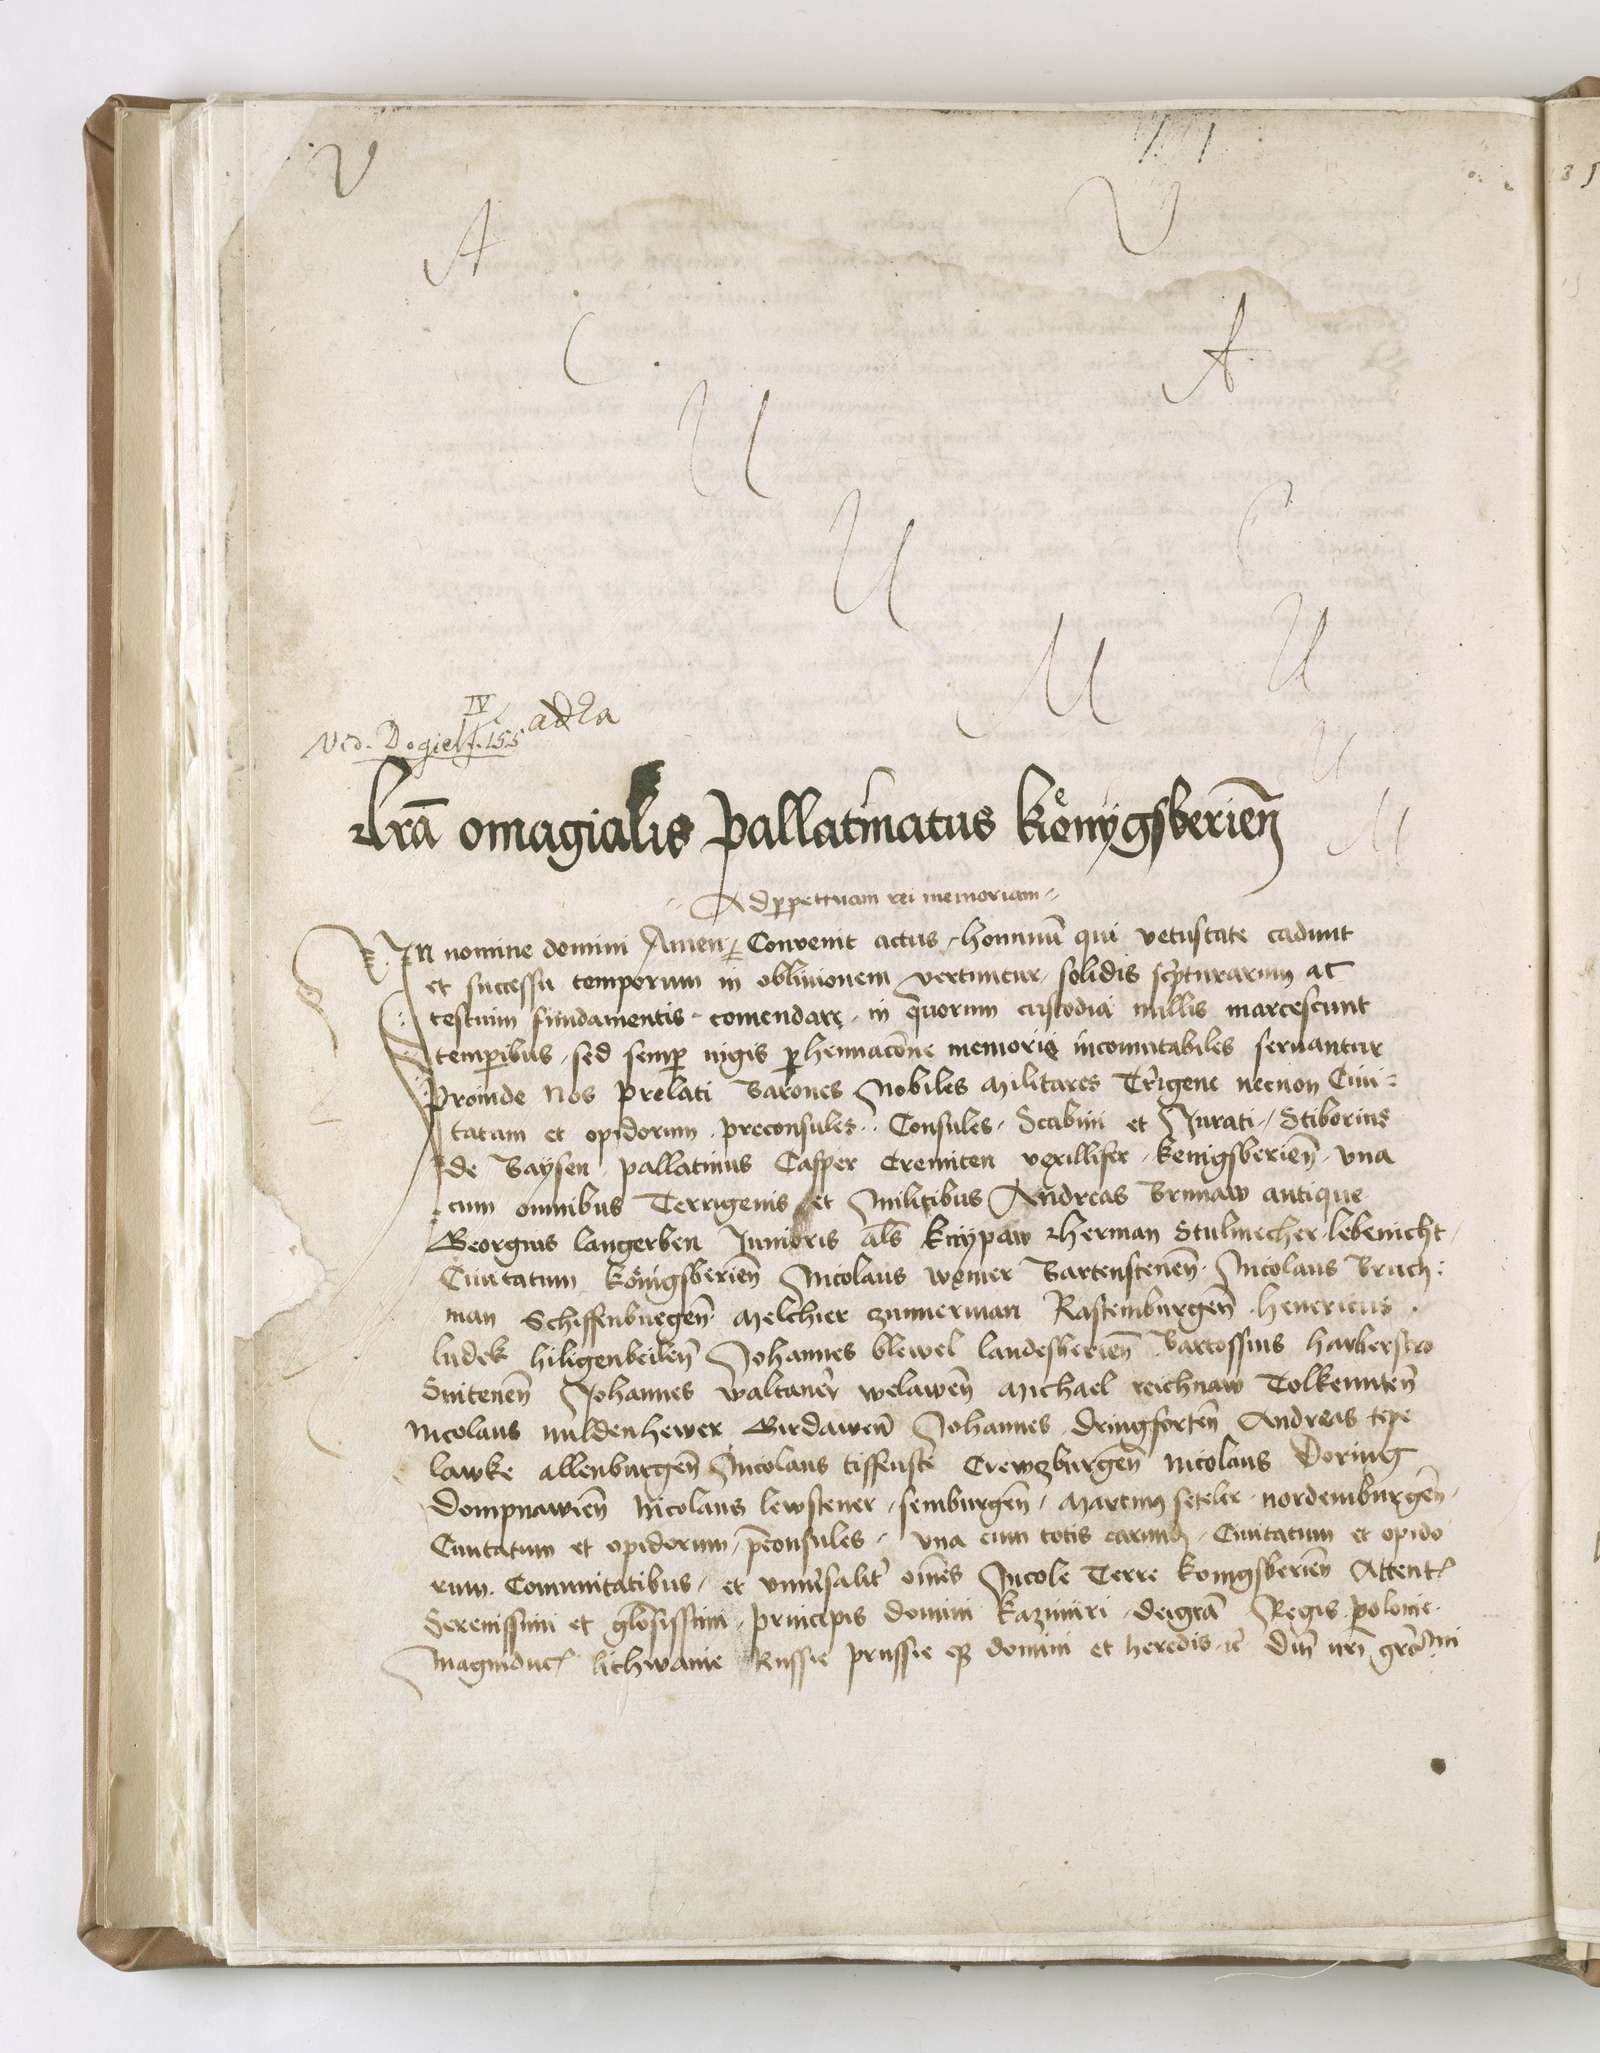 V A C U U M
V A C U U M
Vid. Dogiel IV f. 155 adta
Lrā omagialis pallatinatus koͤnygsberien̄
Ad perpetuam rei memoriam
In nomine domini Amen Convenit actus hominū qui vetustate cadunt
et successu temporum in oblivionem vertuntur solidis scripturarum ac
testium fundamentis comendare in quorum custodia nullis marcescunt
temporibus sed semper iugis perhennacōne memorie incomutabiles seruantur
Proinde Nos prelati Barones Nobiles Militares Trigene necnon Ciui-
tatum et opidorum preconsules Consules Scabini et Jurati Stiborius
de Baysen pallatinus Casper Cremiten vexillifer kenigsberien̄ vna
cum omnibus Terrigenis et Militibus Andreas Brunaw antique
Georgius langerben Junioris als kniypaw Herman Stulmecher lebenicht
Ciuitatum koͤnigsberien̄ Nicolaus Bartenstenen̄ Nicolaus Bruch:
man Schiffenburgen̄ Melchier zunnerman Rastemburgen̄ Henericus
ludek hiligenbeilen̄ Johannes blewel landesberien̄ Bartossius
Sintenen̄ Johannes waltaner welawen̄ Michael reichnaw Tolkemiten̄
Nicolaus muldenhewer Girdawen̄ Johannes dringforten̄ Andreas tepe
lawke allenburgen̄ Nicolaus tiffenste Crewzburgen̄ Nicolaus Doring
Dompnawien̄ Nicolaus lewstener semburgen̄ Martinus seteler nordemburgen̄
Ciuitatum et opidorum pc̄onsules vna cum totis earund Ciuitatum et opido
rum Comunitatibus et vniūsalit om̄es Incole Terre konigsberien̄ Attent
Serenissimi et glōsissimi principis domini kazimiri deigrā Regis polonie
Magniduc lithwanie Russie prussie eꝫ domini et heredis ec̄ dni nri grōsmi